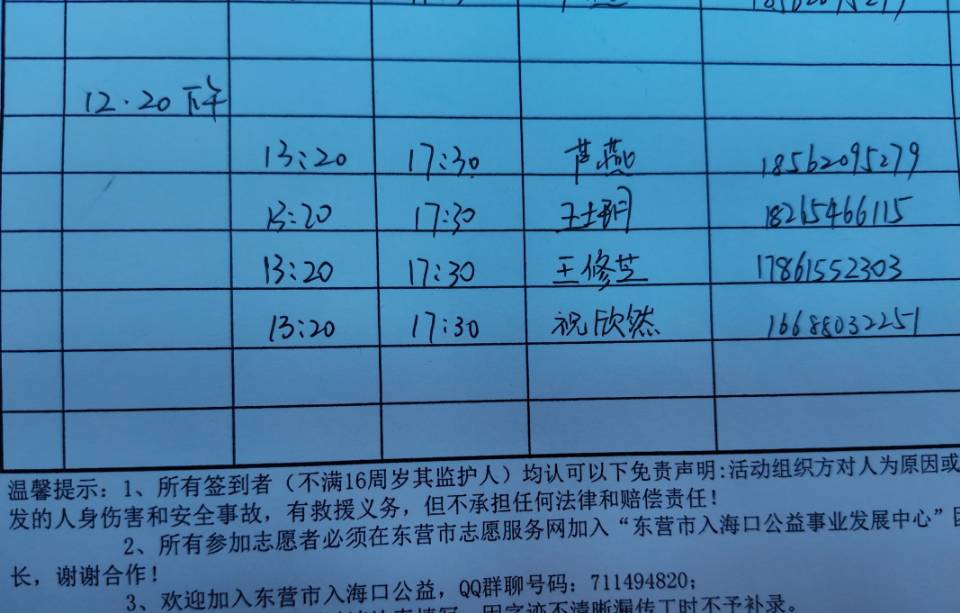 18562095279
12.20下午
13:20 17:30 芦燕 18562095279
13:20 17:30 王 18265466115
13:20 17:30 王修芝 17861552303
13:20 17:30 祝欣然 16688032251
温馨提示：1、所有签到者（不满16周岁其监护人）均认可以下免责声明:活动组织方对人为原因或
发的人身伤害和安全事故，有救援义务，但不承担任何法律和赔偿责任！
2、所有参加志愿者必须在东营市志愿服务网加入“东营市入海口公益事业发展中心”
长，谢谢合作！
3、欢迎加入东营市入海口公益，QQ群聊号码：711494820；
因字迹不清晰漏传工时不予补录。